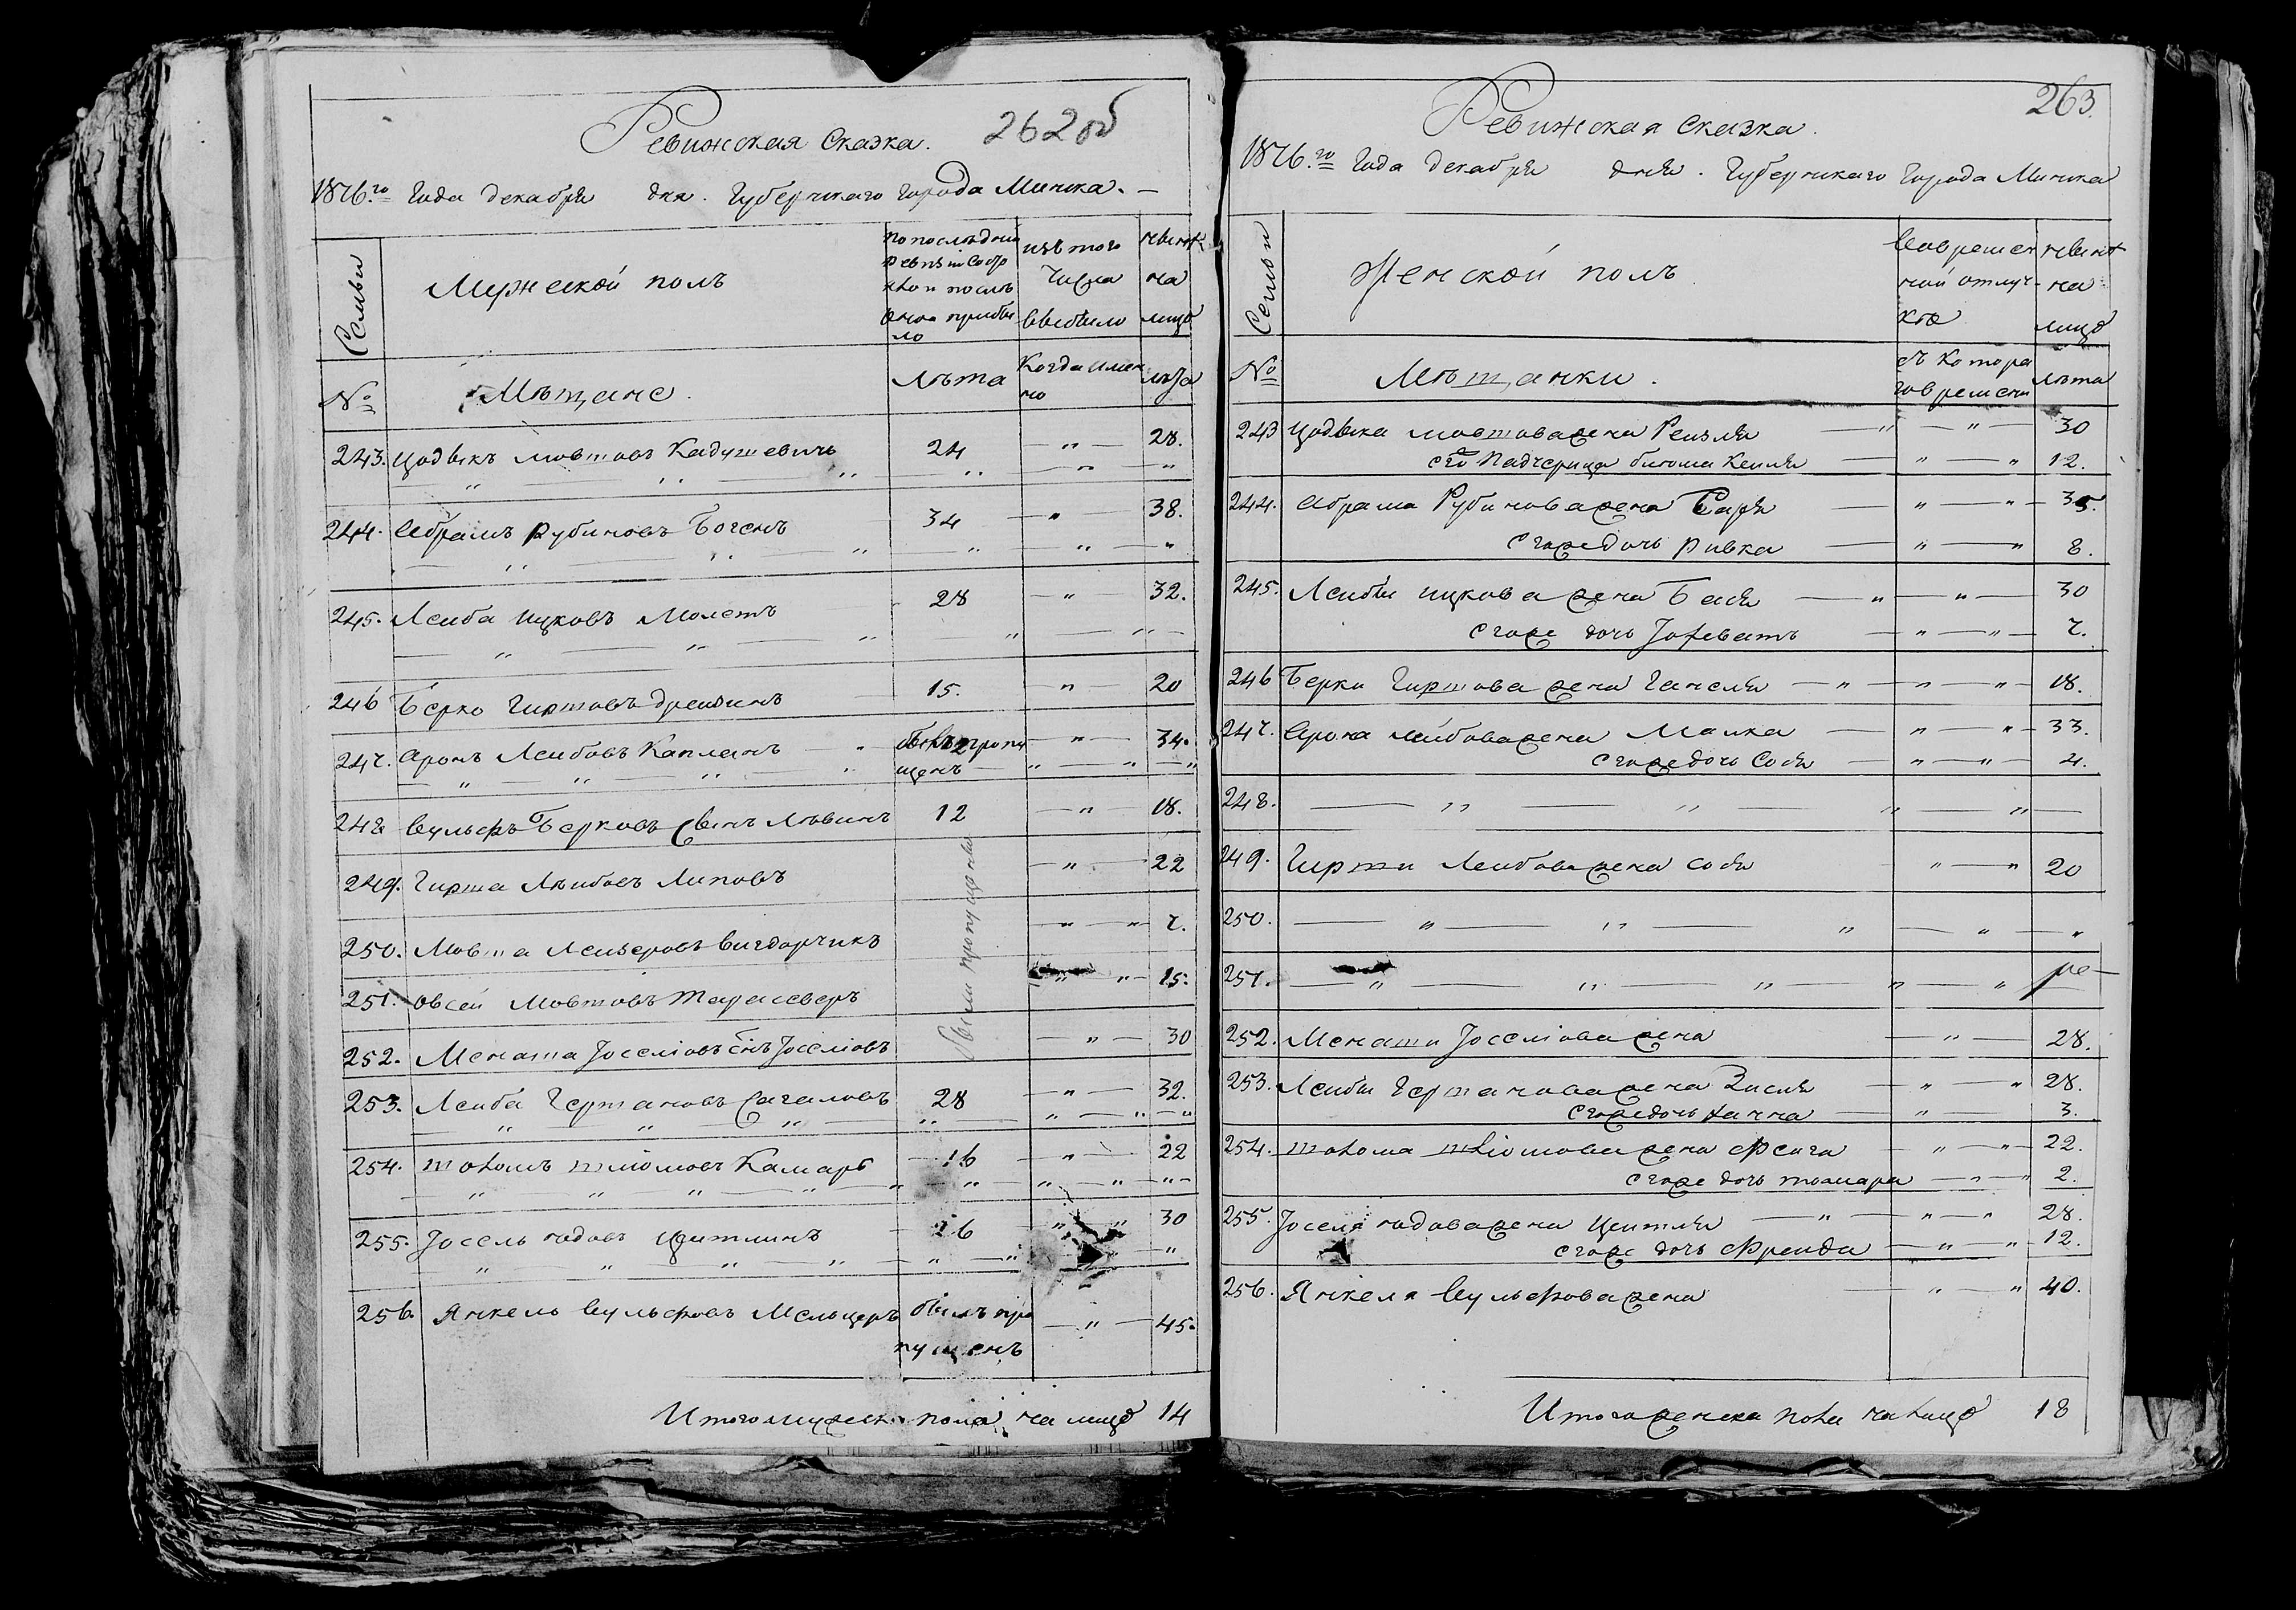 262 об
Ревижская Сказка.
1816.го Года декабря дня. Губернскаго города Минска. —
Семьи
Мужеской полъ
по последней ревизіи состояло и после оной прибыло
изъ того числа выбыло
ныне на лицо
№
Мещане.
Лета
Когда имено
лета
243. Цодыкъ Мовшовъ Кадушевичъ 24 " 28.
244. Абрамъ Рубиновъ Богенъ 34 " 38.
245. Лейба Ицковъ Молетъ 28 " 32.
246 Берко Гиршовъ 15. " 20
247. Аронъ Лейбовъ Капланъ былъ пропущенъ " 34.
248 Вульфъ Берковъ Сынъ Левинъ 12 " 18.
249. Гирша Лейбовъ Липовъ " 22
были пропущены
250. Мовша Лейзеровъ Вигдорчикъ " 7.
251. Овсей Мовшовъ " 15.
252. Менаша Іоселіовъ Сынъ Іоселіовъ " 30
253. Лейба Гершановъ Сагаловъ 28 " 32.
254. Шоломъ Шліомовъ Камаръ 16 " 22
255. Іосель Цейтлинъ 26 " 30
256. Янкель Вульфовъ Мельцеръ былъ пропущенъ " 45.
Итого мужеск. пола на лицо 14
263.
Ревижская Сказка.
1816.го Года декабря дня. Губернскаго Города Минска
Семьи
Женской полъ
во временной отлучке
ныне на лицо
№
Мещанки.
съ котораго времени
лета
243 Цодыка Мовшова жена Рейзля " 30
его Падчерица Кейля " 12.
244. Абрама Рубинова жена Сара " 35.
его же дочь Ривка " 8.
245. Лейбы Ицкова жена Бася " 30
его же дочь " 7.
246 Берки Гиршова жена Ганеля " 18.
247. Арона Лейбова жена Малка " 33.
его же дочь Сося " 4.
248. "
249. Гирши Лейбова жена Сося " 20
250. "
251. "
252. Менаши Іоселіова жена " 28.
253. Лейбы Гершанова жена Зисля " 28.
его же дочь Ханна " 3.
254. Шолома Шліомова жена Фейга " 22.
его же дочь Тамара " 2.
255. Іоселя жена Цейтля " 28.
его же дочь Фрейда " 12.
256. Янкеля Вульфова жена " 40.
Итого женска пола на лицо 18